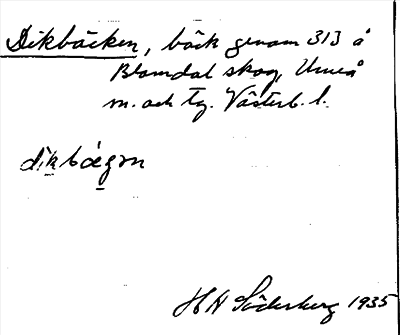 Dikbäcken, bäck genom 313 å
Blomdal skog, Umeå
m. och tg. Västerb. l.
dikbägn
H N Söderberg 1935